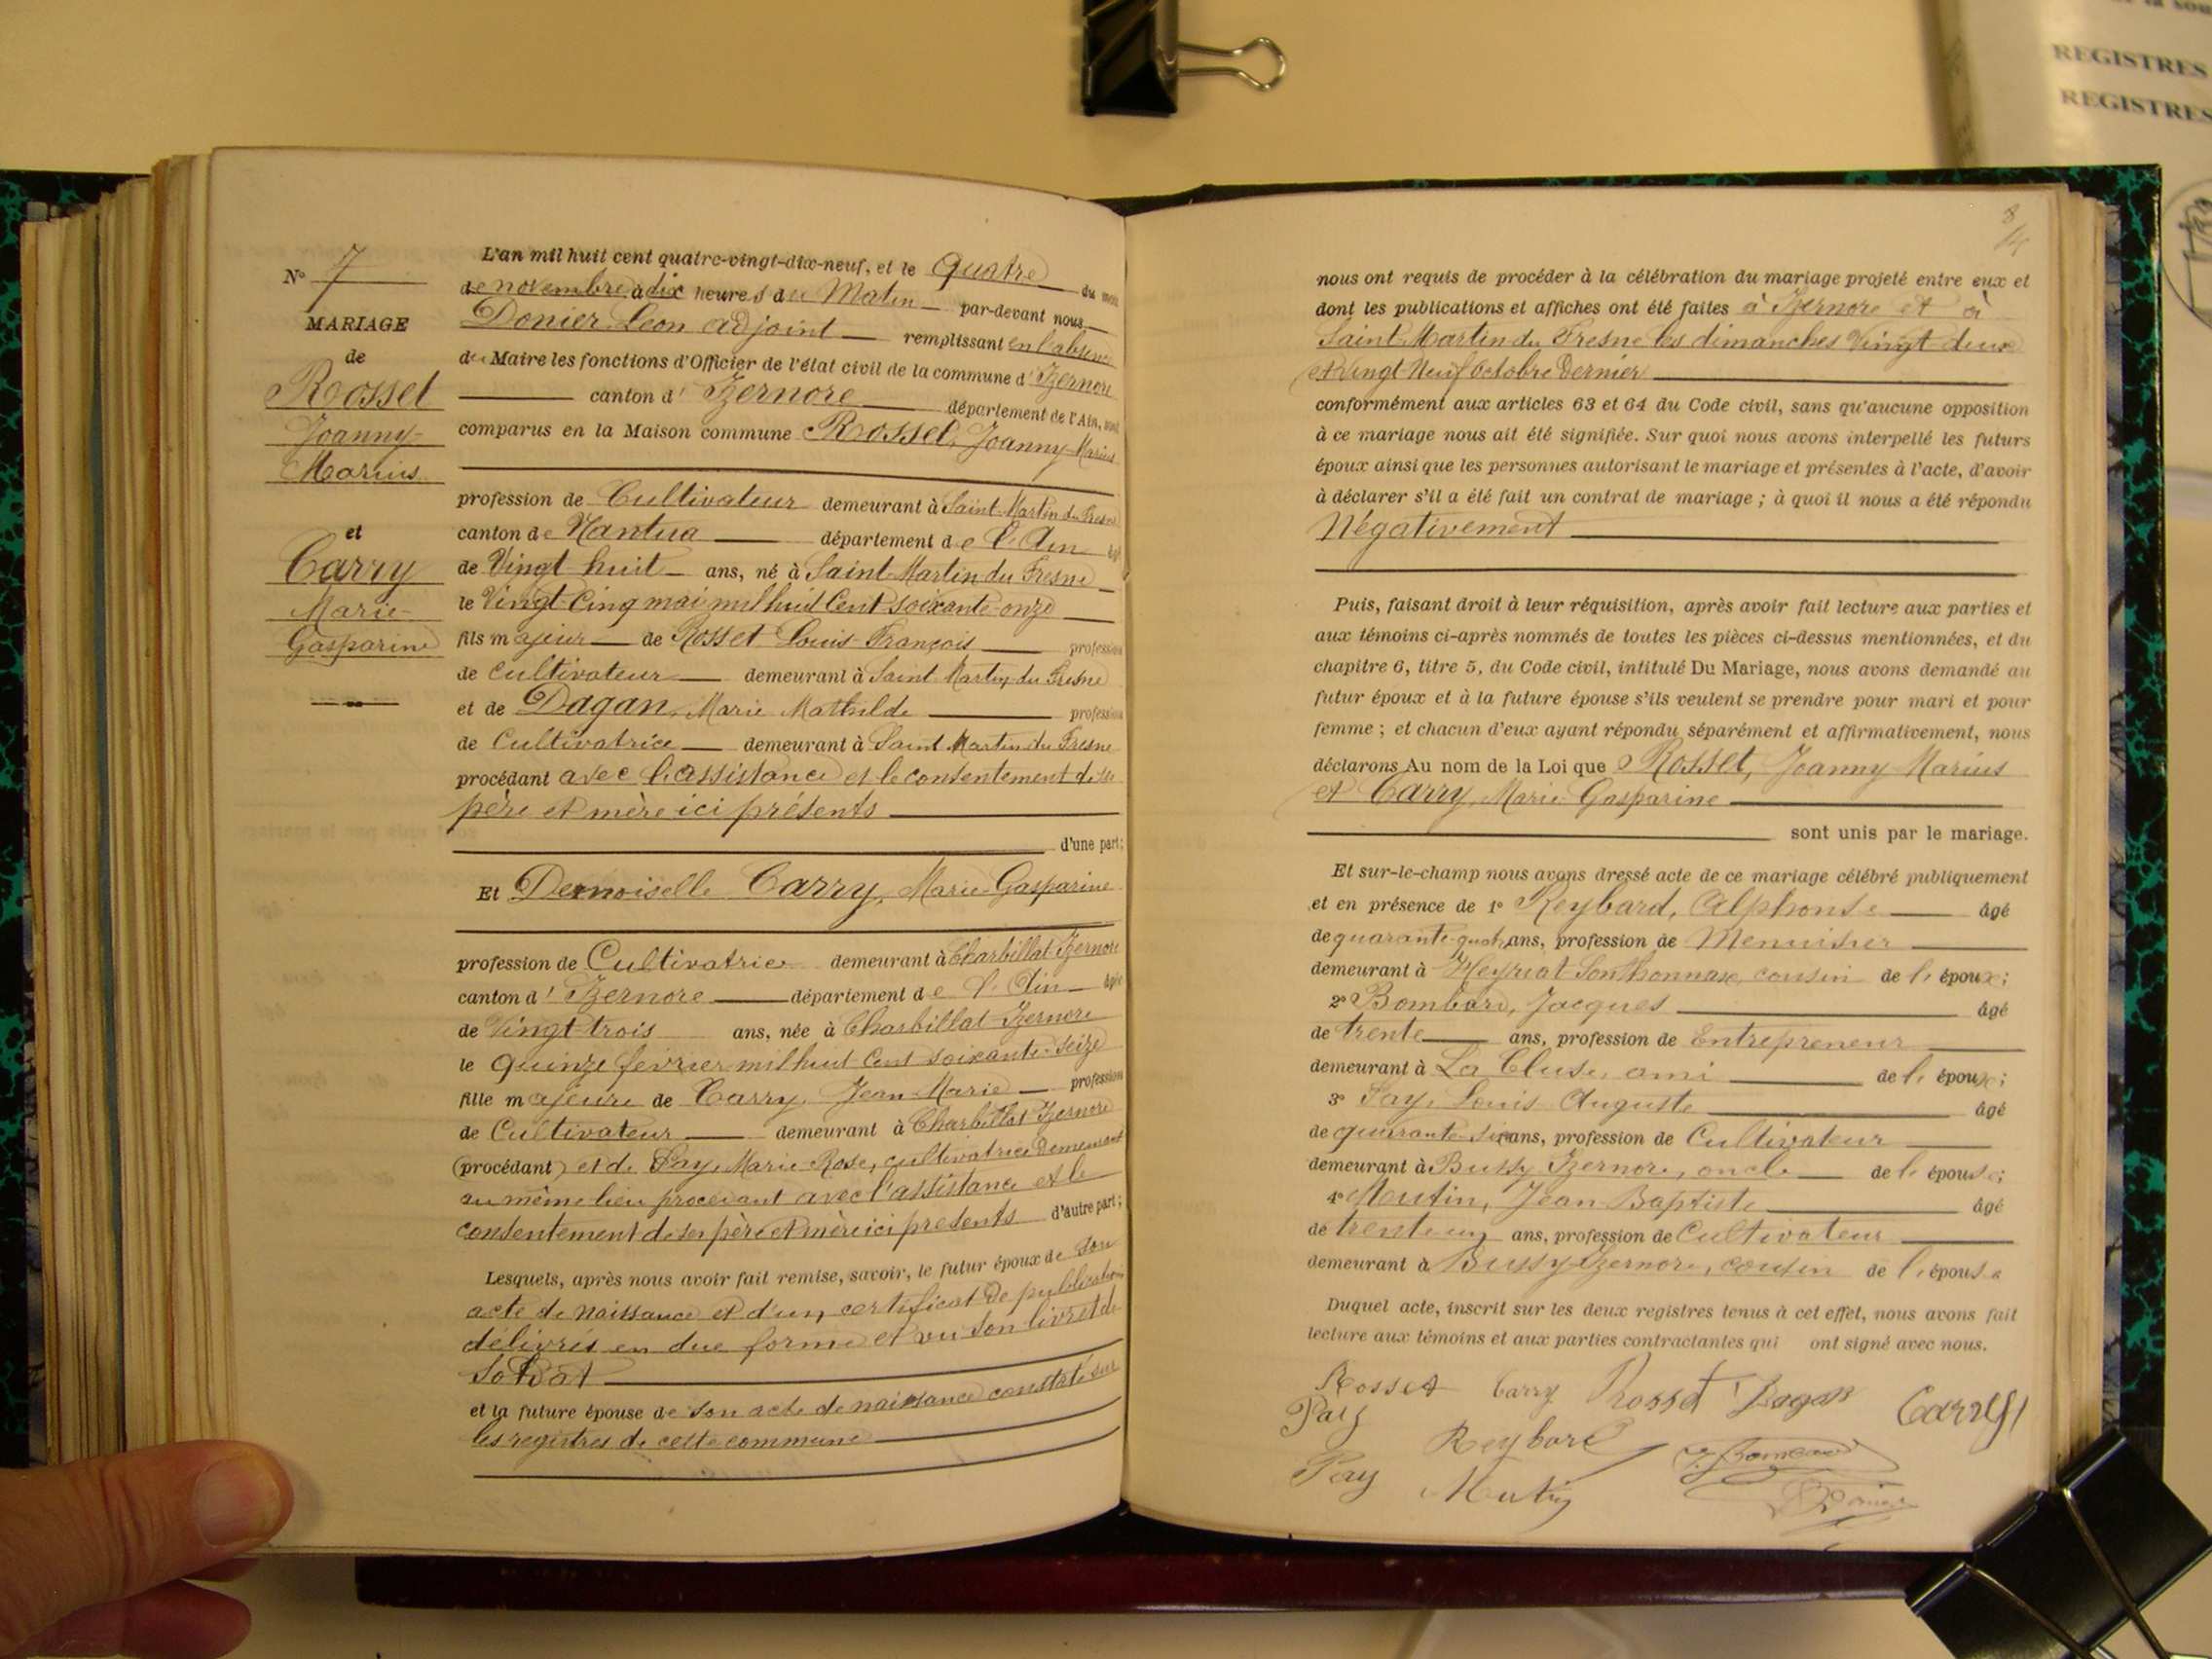 N° 7
MARIAGE
de
Rosset
Joanny
Marius
et
Carry
Marie
Gasparine
L'an mil huit cent quatre-vingt-dix-neuf, et le quatre du mois
de novembre à dix heures du Matin par-devant nous,
Donier Leon adjoint remplissant en l'absence
du Maire les fonctions d'Officier de l'état civil de la commune d'Izernore
canton d'Izernore département de l'Ain, sont
comparus en la Maison commune Rosset, Joanny Marius
profession de Cultivateur demeurant à Saint Martin du Fresne
canton de Nantua département de l'Ain âgé
de Vingt huit ans, né à Saint Martin du Fresne
le Vingt Cinq mai mil huit Cent soixante-onze
fils majeur de Rosset Louis François profession
de cultivateur demeurant à Saint Martin du Fresne
et de Dagan, Marie Mathilde profession
de Cultivatrice demeurant à Saint Martin du Fresne
procédant avec l'assistance et le consentement de ses
père et mère ici présents
d'une part;
Et Demoiselle Carry, Marie Gasparine
profession de Cultivatrice demeurant à Charbillat Izernore
canton d'Izernore département de l'Ain âgée
de Vingt trois ans, née à Charbillat Izernore
le quinze fevrier mil huit Cent soixante-seize
fille majeure de Carry, Jean Marie profession
de Cultivateur demeurant à Charbillat Izernore
(procédant) et de Pay, Marie Rose, cultivatrice demeurant
au même lieu procédant avec l'assistance et le
consentement de ses père et mère ici presents d'autre part;
Lesquels, après nous avoir fait remise, savoir, le futur époux de son
acte de naissance et d'un certificat de publication
délivrés en due forme et vu son livret de
soldat
et la future épouse de son acte de naissance constaté sur
les registres de cette commune
8
nous ont requis de procéder à la célébration du mariage projeté entre eux et
dont les publications et affiches ont été faites à Izernore et à
Saint Martin du Fresne les dimanches Vingt deux
et Vingt Neuf Octobre Dernier
conformément aux articles 63 et 64 du Code civil, sans qu'aucune opposition
à ce mariage nous ait été signifiée. Sur quoi nous avons interpellé les futurs
époux ainsi que les personnes autorisant le mariage et présentes à l'acte, d'avoir
à déclarer s'il a été fait un contrat de mariage ; à quoi il nous a été répondu
Négativement
Puis, faisant droit à leur réquisition, après avoir fait lecture aux parties et
aux témoins ci-après nommés de toutes les pièces ci-dessus mentionnées, et du
chapitre 6, titre 5, du Code civil, intitulé Du Mariage, nous avons demandé au
futur époux et à la future épouse s'ils veulent se prendre pour mari et pour
femme ; et chacun d'eux ayant répondu séparément et affirmativement, nous
déclarons Au nom de la Loi que Rosset, Joanny Marius
et Carry, Marie Gasparine
sont unis par le mariage.
Et sur-le-champ nous avons dressé acte de ce mariage célébré publiquement
et en présence de 1° Reybard, Alphonse âgé
de quarante-quatre ans, profession de Menuisier
demeurant à Heyriat Sonthonnax, cousin de l'époux;
2° Bombard, Jacques âgé
de trente ans, profession de Entrepreneur
demeurant à La Cluse, ami de l'époux;
3° Pay, Louis Auguste âgé
de quarante-six ans, profession de Cultivateur
demeurant à Bussy Izernore, oncle de l'épouse;
4° Mutin, Jean Baptiste âgé
de trente un ans, profession de Cultivateur
demeurant à Bussy Izernore, cousin de l'épouse
Duquel acte, inscrit sur les deux registres tenus à cet effet, nous avons fait
lecture aux témoins et aux parties contractantes qui ont signé avec nous.
Rosset Carry Rosset Dagan Carry
Pay Reybard J. Bombard
Pay Mutin Donier
REGISTRES
REGISTRES